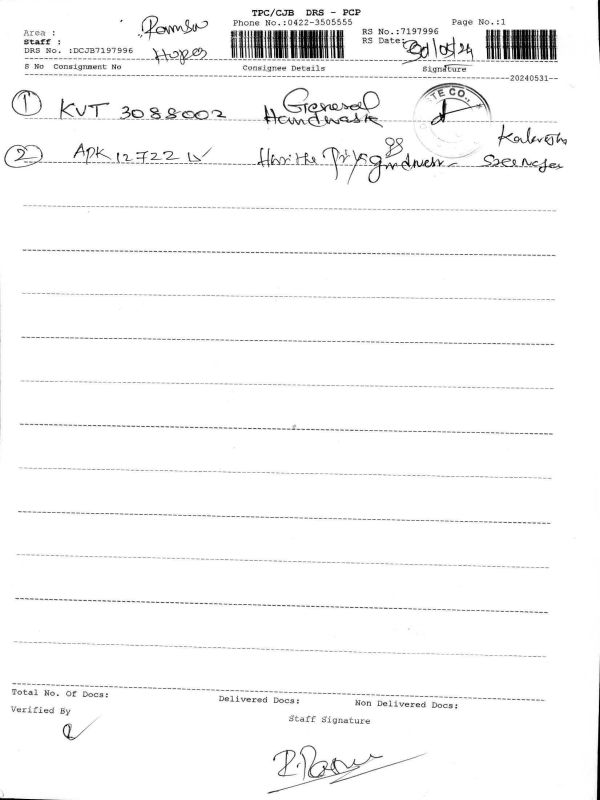 TPC/CJB DRS - PCP
Area : Ramsu Phone No.:0422-3505555 Page No.:1
Staff : RS No.:7197996
DRS No. :DCJB7197996 Hopes RS Date: 30/05/24
S No Consignment No Consignee Details Signature
20240531
1 KVT 3088002 General
Handwash
STE CO.,
2 APK 12722
Total No. Of Docs: Delivered Docs: Non Delivered Docs:
Verified By
Staff Signature